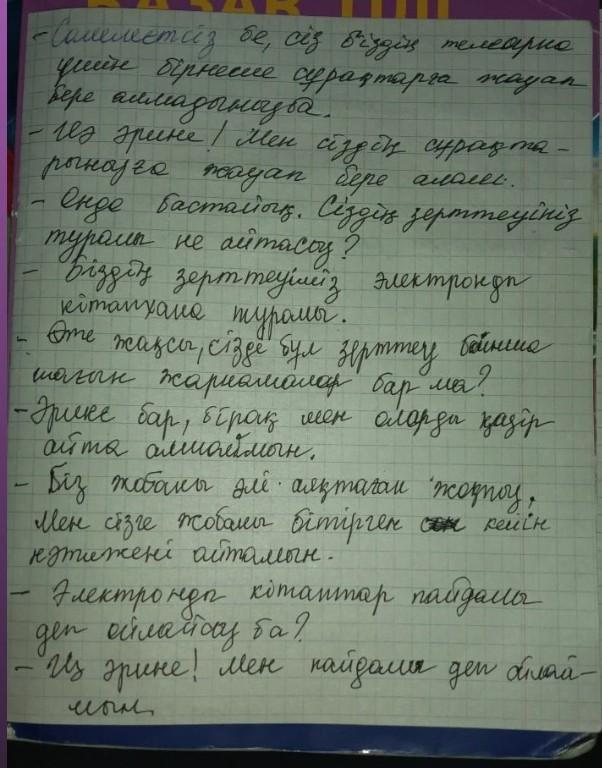 ҚАЗАҚ ТІЛІ
- Сәлеметсіз бе, сіз біздің телеарна
үшін бірнеше сұрақтарға жауап
бере алмадыңызба.
- Иә әрине! Мен сіздің сұрақта-
рыңызға жауап бере аламын.
- Онда бастайық. Сіздің зерттеуіңіз
туралы не айтасыз?
- Біздің зерттеуіміз электронды
кітапхана туралы.
- Өте жақсы, сізде бұл зерттеу бойынша
шағын жарнамалар бар ма?
- Әрине бар, бірақ мен оларды қазір
айта алмаймын.
- Біз жобаны әлі аяқтаған жоқпыз.
Мен сізге жобаны бітірген кейін
нәтижені айтамын.
- Электронды кітаптар пайдалы
деп ойлайсыз ба?
- Иә әрине! Мен пайдалы деп ойлай-
мын.